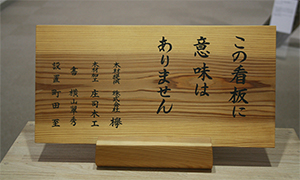 この看板に
意味は
ありません
木材提供 株式会社 欅
木材加工 庄司木工
書 横山翠秀
設置 町田 至